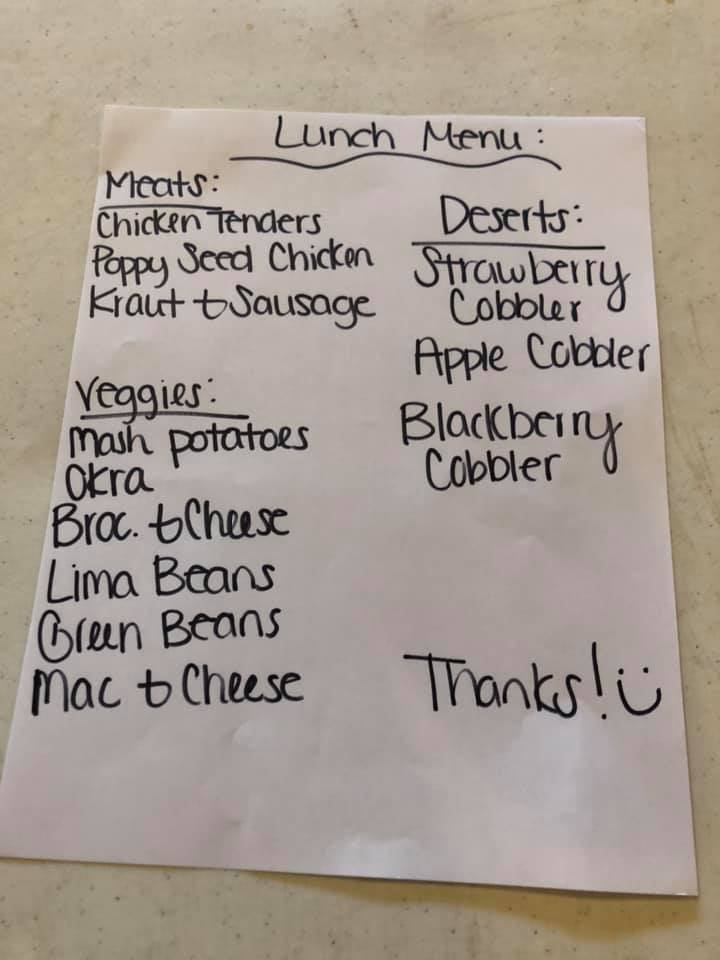 Lunch Menu:
Meats:
Chicken Tenders
Poppy Seed Chicken
Kraut & Sausage
Veggies:
Mash potatoes
Okra
Broc. & Cheese
Lima Beans
Green Beans
Mac & Cheese
Deserts:
Strawberry
Cobbler
Apple Cobbler
Blackberry
Cobbler
Thanks! :)